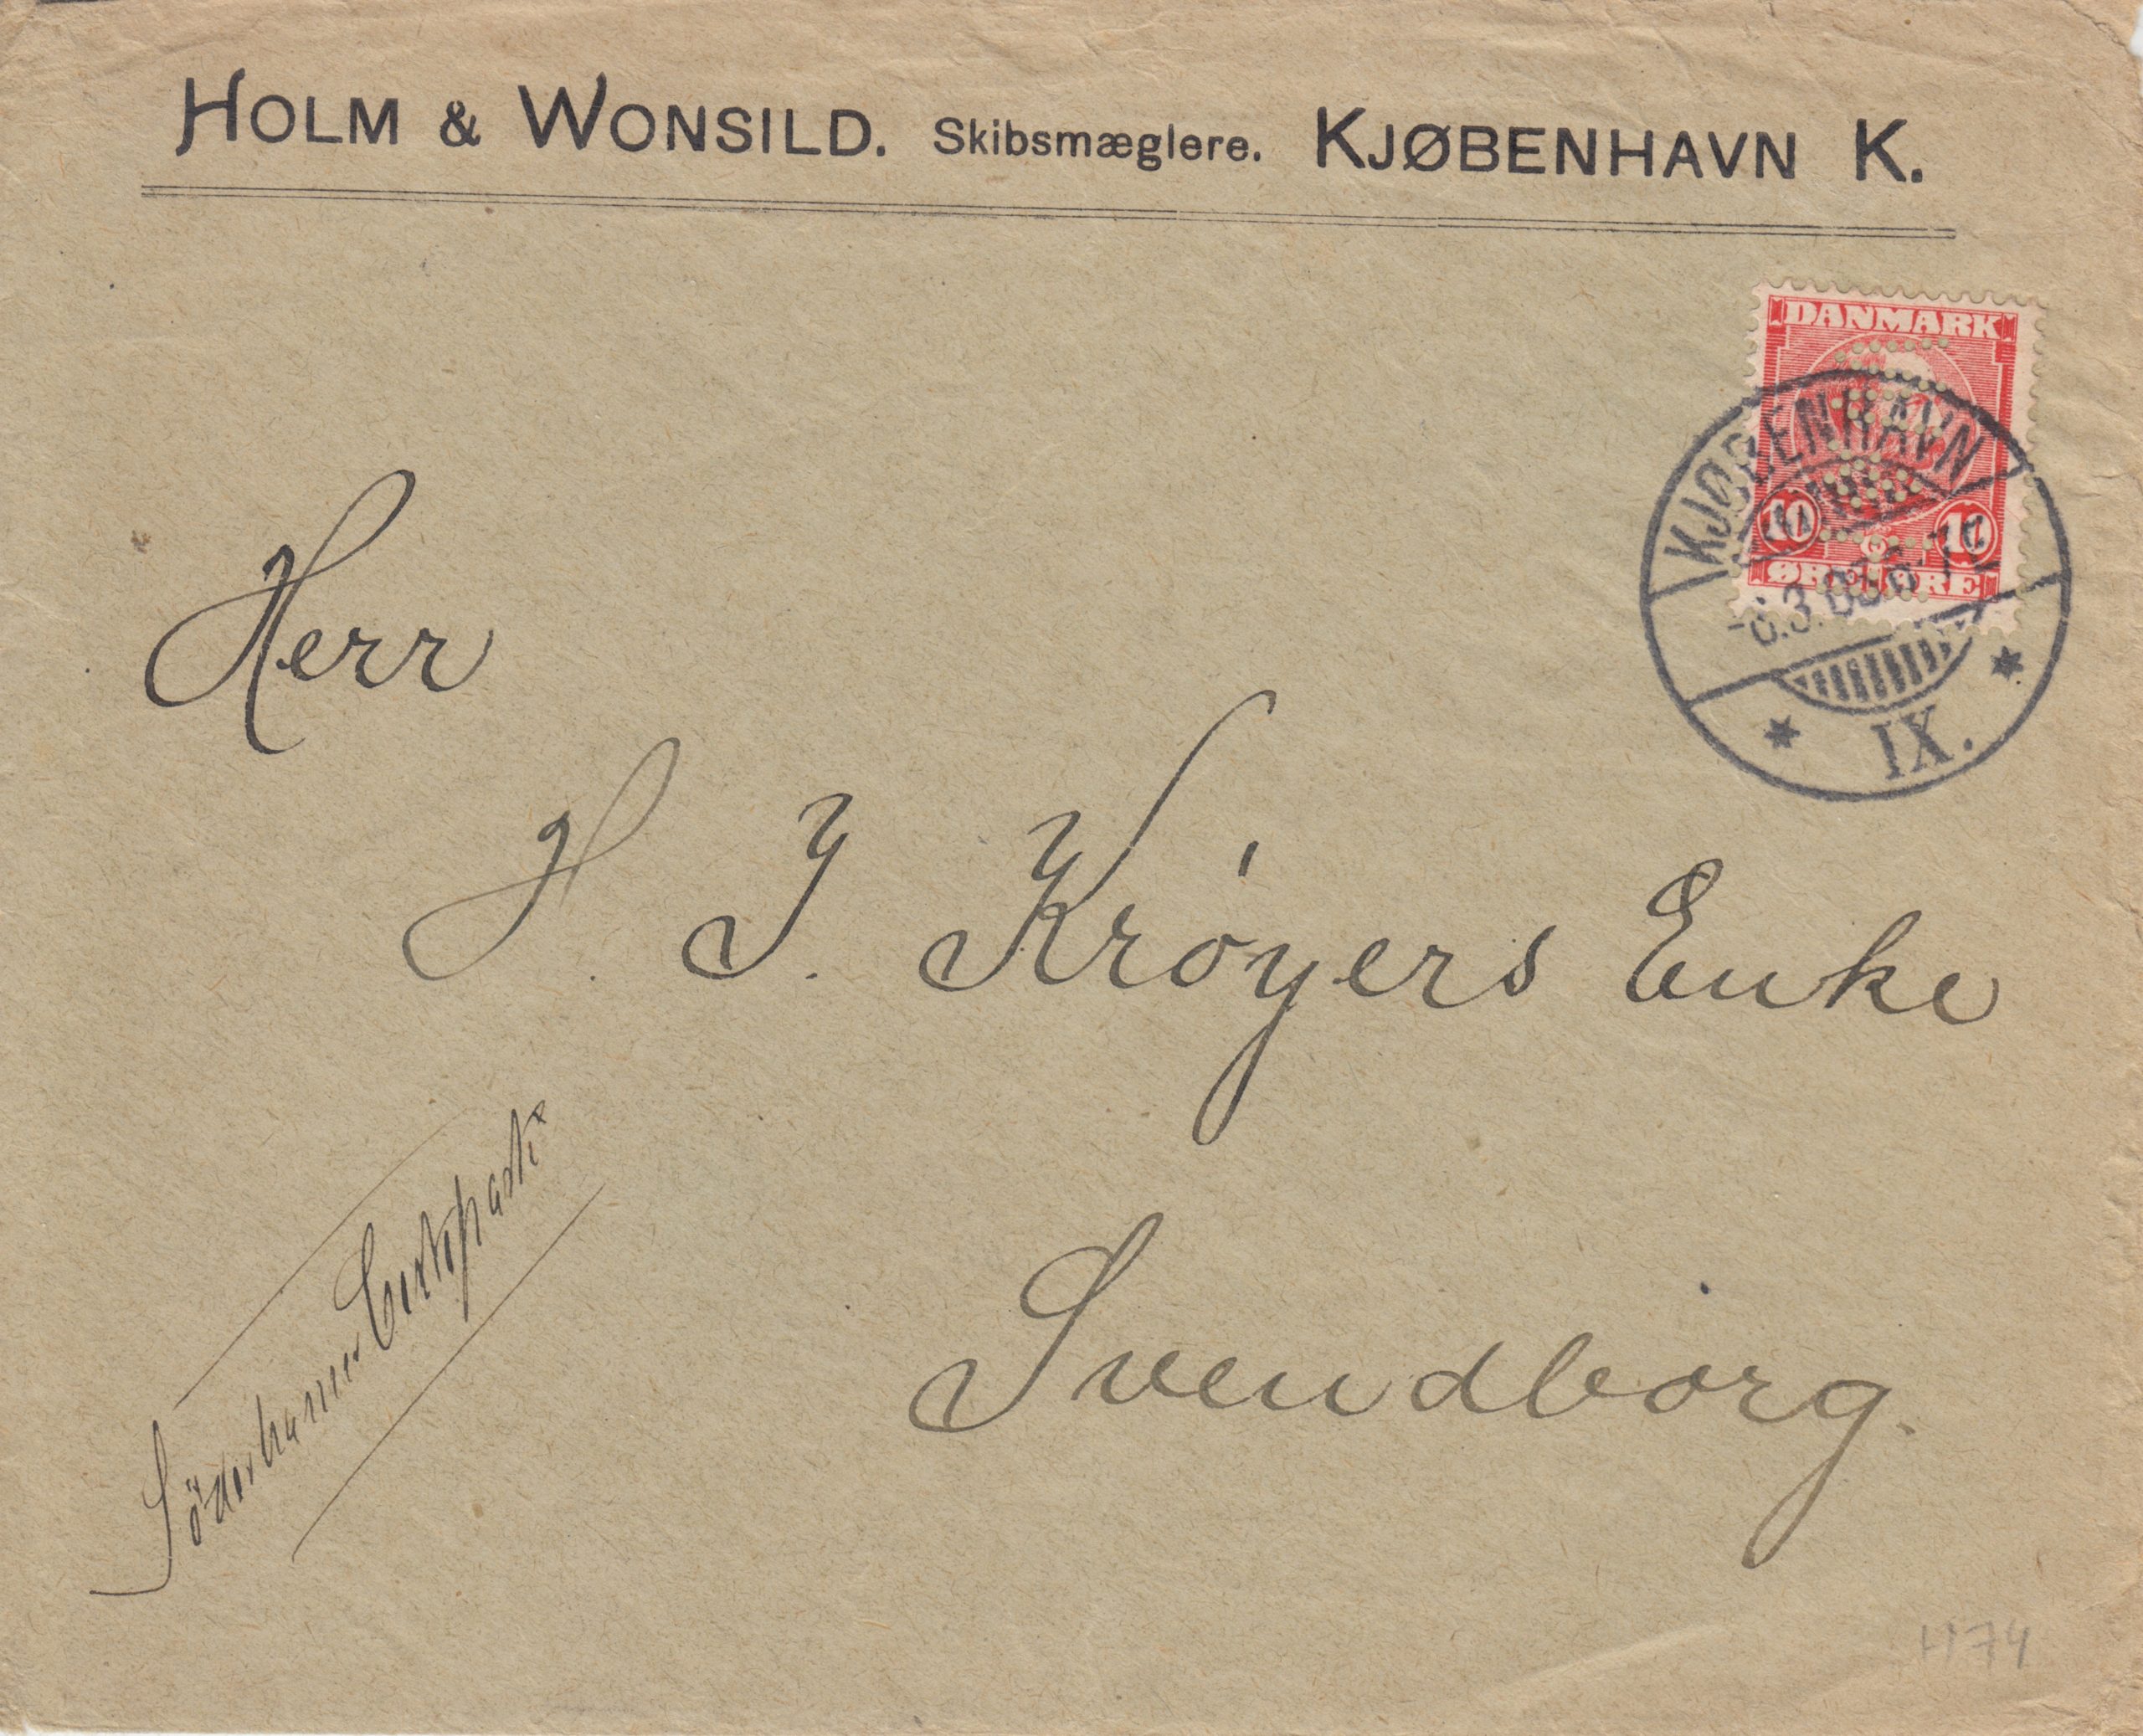 HOLM & WONSILD. Skibsmæglere. KJØBENHAVN K.
DANMARK
10 10
ØRE ØRE
KJØBENHAVN
IX.
Herr
H. J. Krøyers Enke
Svendborg.
Söderhamn
H74